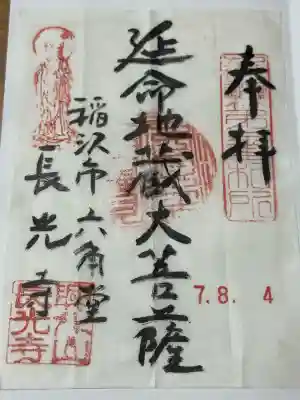 奉拝
7.8.4
延命地蔵大菩薩
稲沢市六角堂
長光寺
長光寺